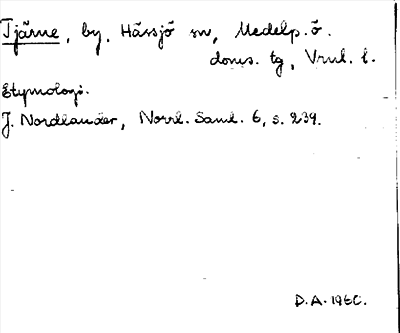 Tjärne, by. Hässjö sn, Medelp. ö.
doms. tg, Vrul. l.
Etymologi.
J. Nordlander, Norrl. Saml. 6, s. 239.
D.A. 1960.